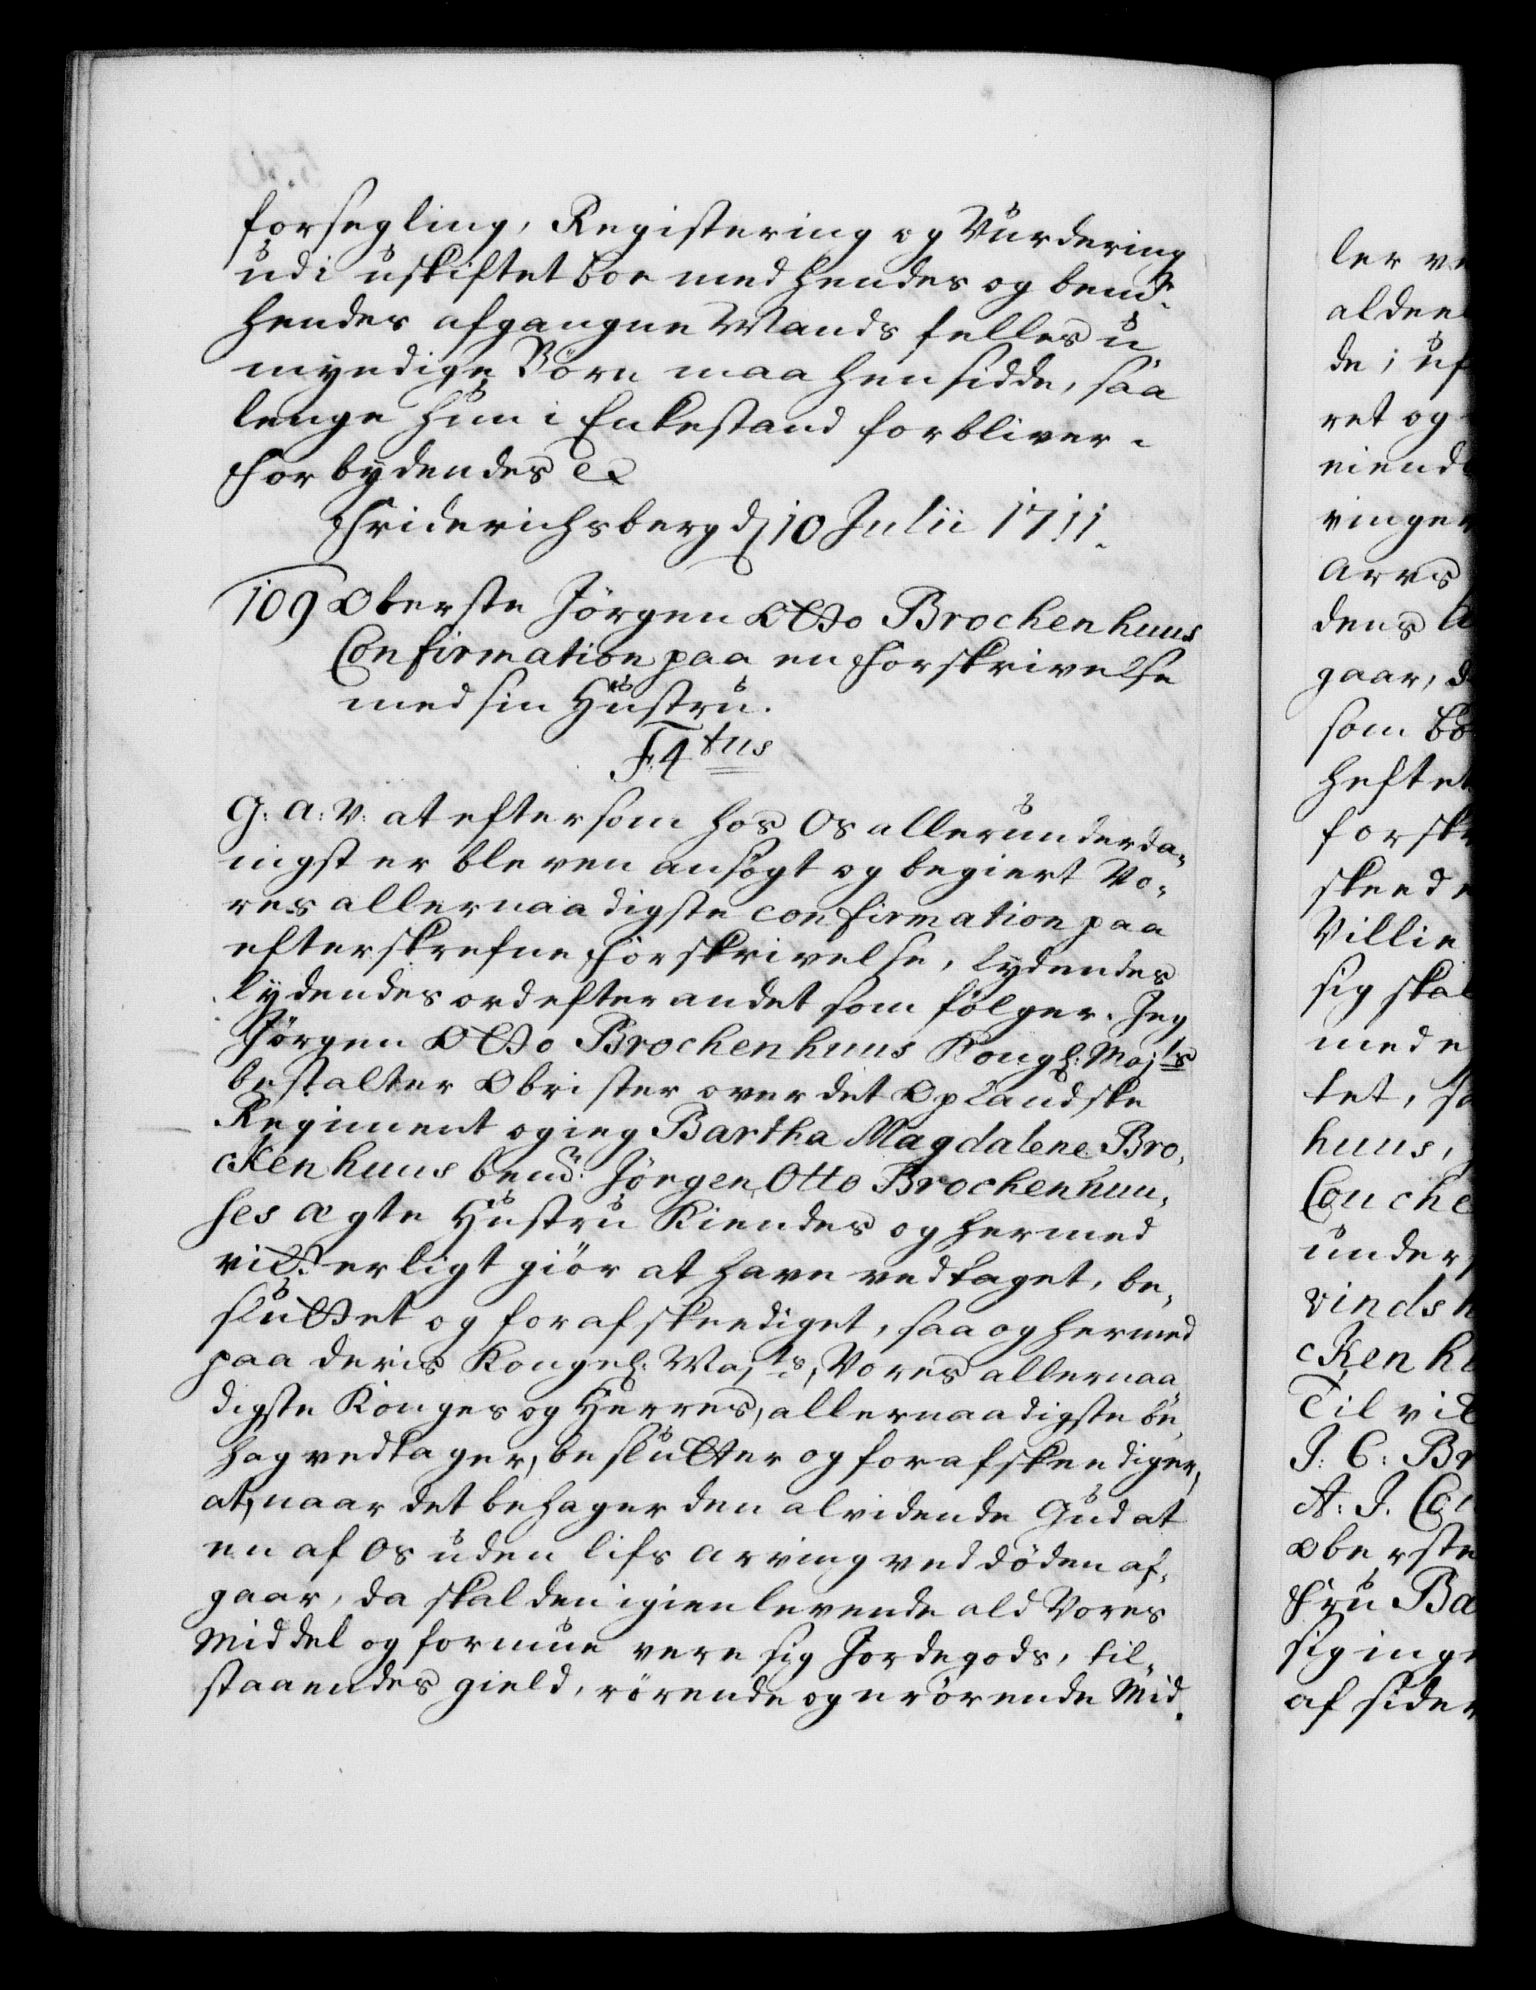 forsegling, Registering og Vurdering
udi uskiftet boe med hendes og bemte
hendes afgangne Mands felles u-
myndige Börn maa hensidde, saa
lenge hun i Enkestand forbliver.
Forbydendes &
Friderichsberg d. 10 Julii 1711.
109 Oberste Jörgen Otto Brochenhuus
Confirmation paa en Forskrivelse
med sin Hustru.
F. 4tus
G: A: V: at eftersom hos Os allerunderda-
nigst er bleven ansögt og begiert Vo-
res allernaadigste confirmation paa
efterskrefne Forskrivelse, lydendes
lydendes ord efter andet som fölger. Jeg
Jörgen Otto Brochenhuus Kongl: Majts
bestalter Obrister over det Oplandske
Regiment og ieg Bartha Magdalene Bro-
ckenhuus bemte Jörgen Otto Brochenhuu-
ses ægte Hustru Kiendes og hermed
vitterligt giör at have vedtaget, be-
sluttet og forafskeediget, saa og hermed
paa deris Kongel: Majts, Vores allernaa
digste Konges og Herres, allernaadigste be-
hag vedtager, beslutter og forafskeediger,
at, naar det behager den alvidende Gud at
en af Os uden lifs arving ved döden af-
gaar, da skal den igienlevende ald Vores
Middel og formue være sig Jordegods, til-
staaendes gield, rörende og urörende Mid-
ler ve
aldee
de; uf
ret og
eiend
ringe
Arvs
dens
gaar, d
som bo
heftet
forsk
skeede
Villie
sig skal
mede
tet, sa
huus,
Couche
under
vinds
cken h
Til vit
J: C: Br
A: J. Co
Oberste
Fru Ba
sig inge
af sider